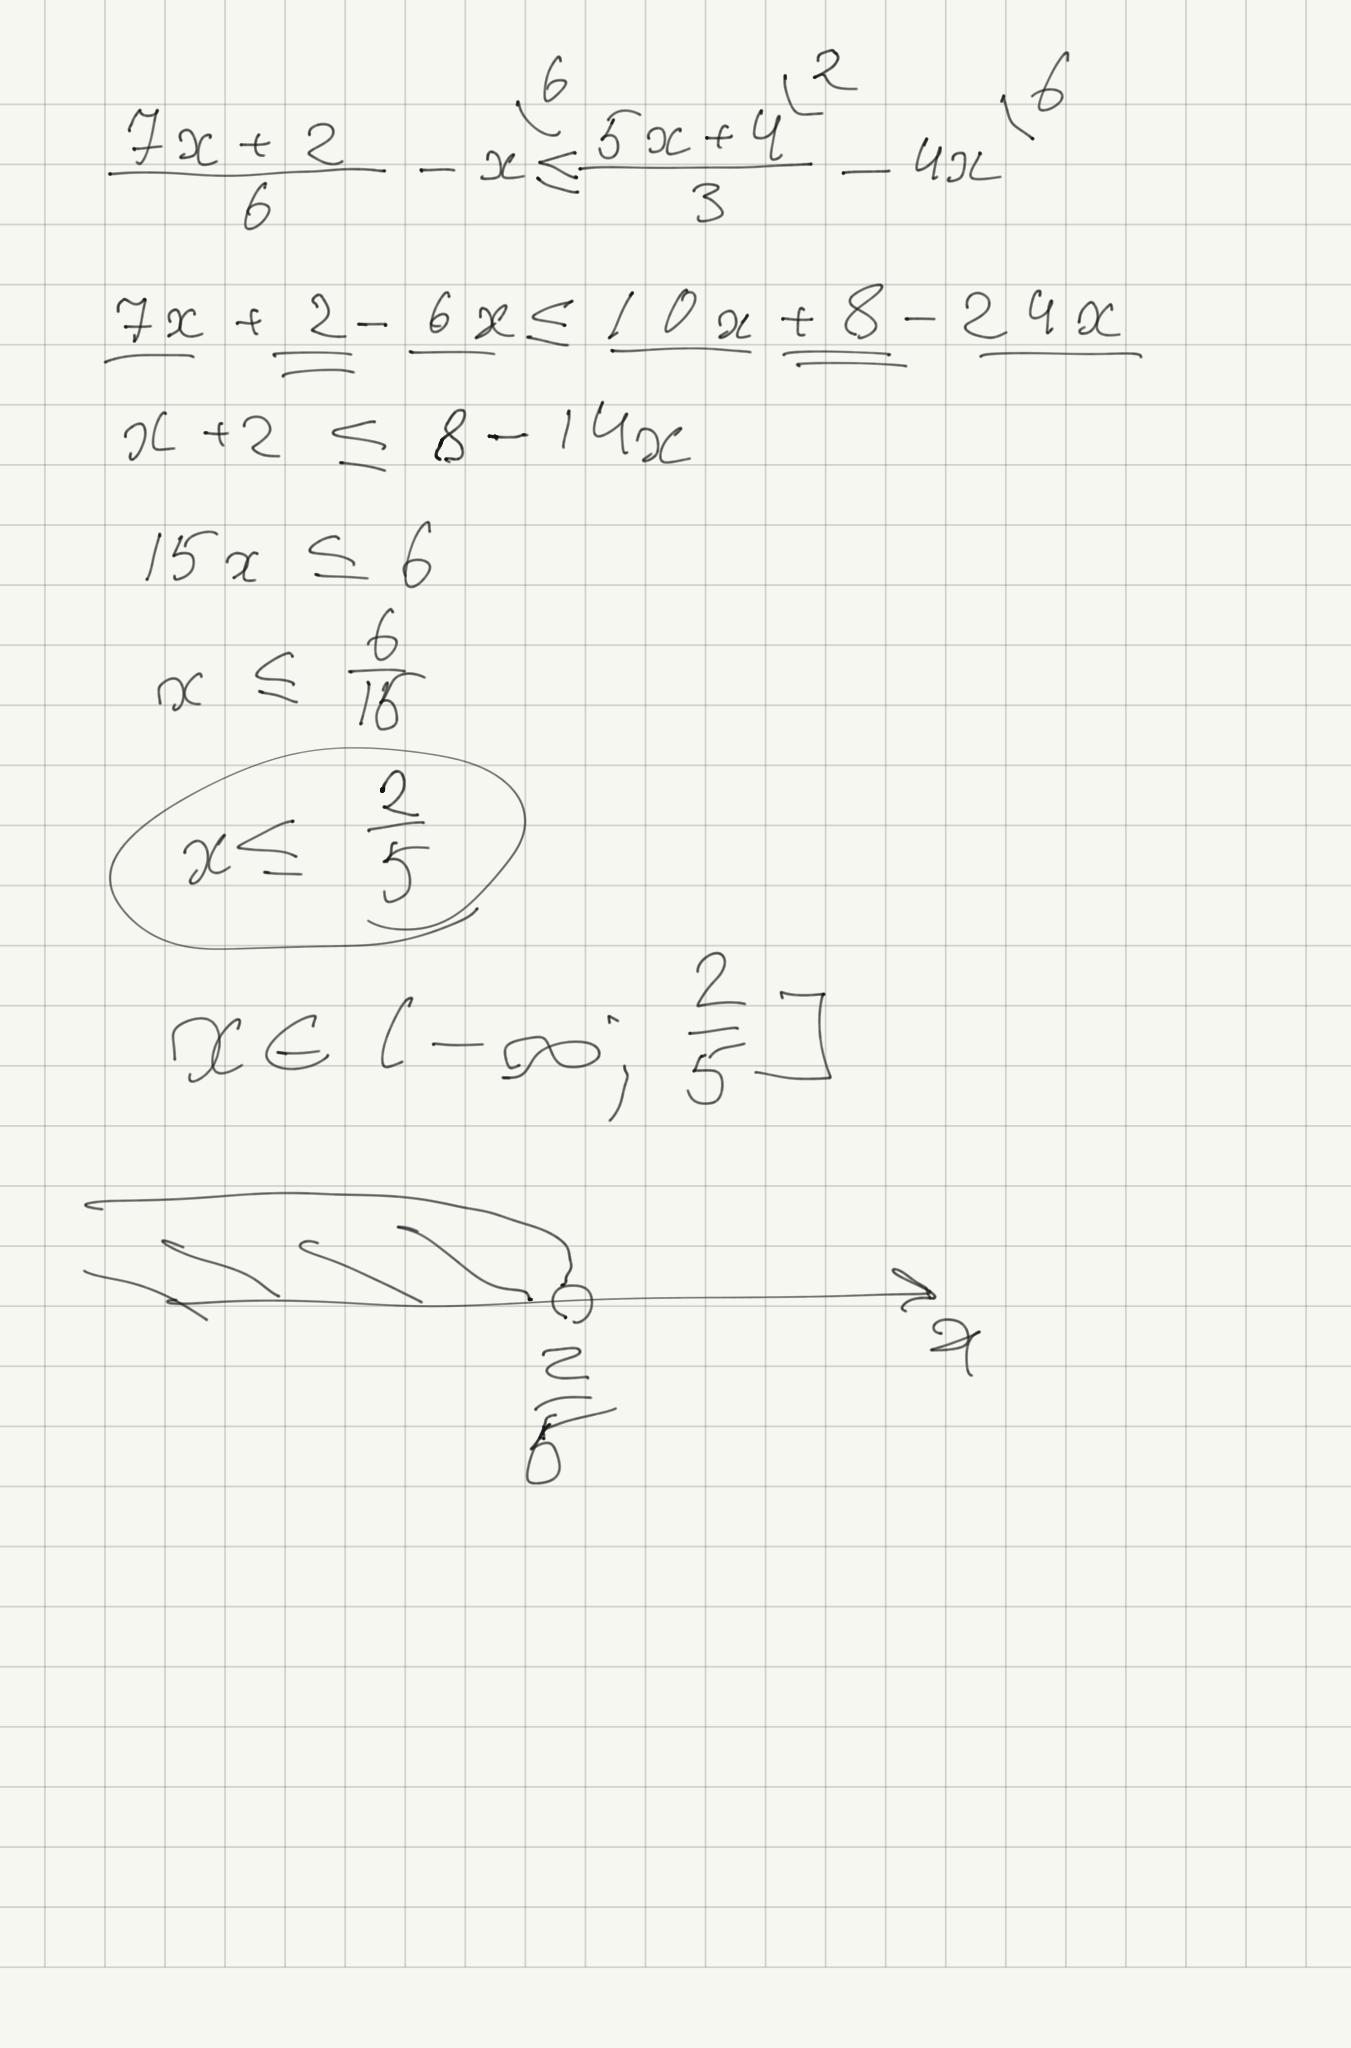 6 2 6
(7x + 2)/6 - x ≤ (5x + 4)/3 - 4x
7x + 2 - 6x ≤ 10x + 8 - 24x
x + 2 ≤ 8 - 14x
15x ≤ 6
x ≤ 6/15
x ≤ 2/5
x ∈ (-∞; 2/5]
x
2/5